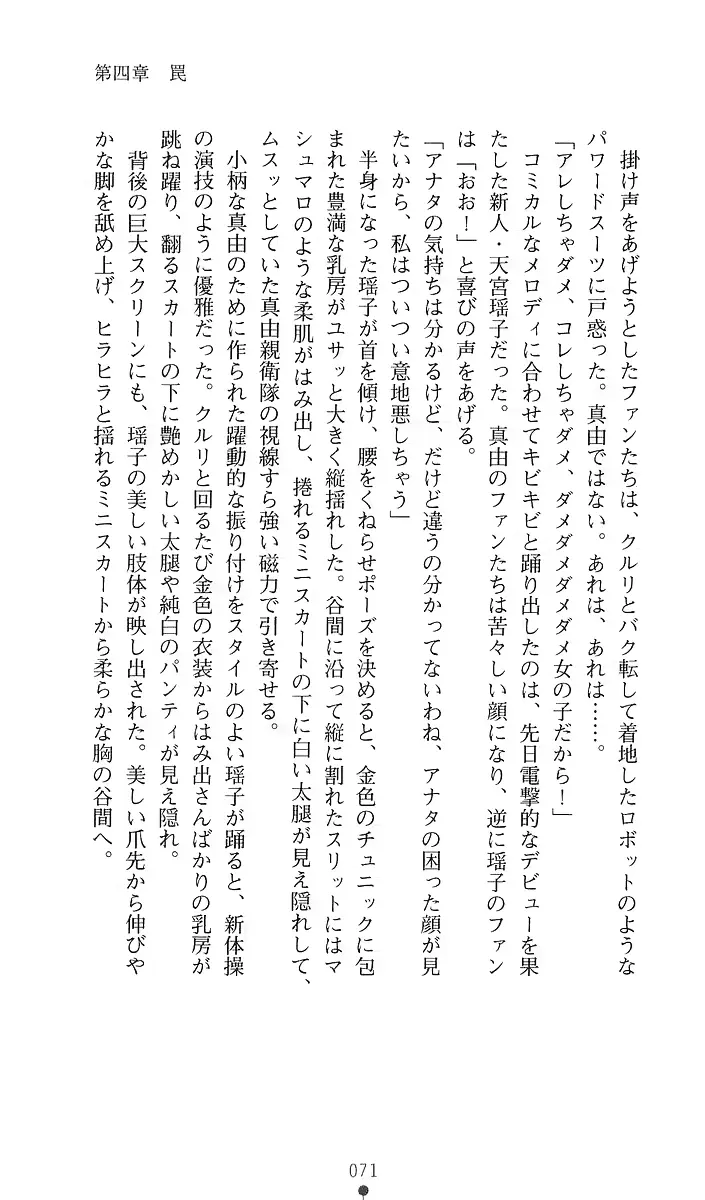 第四章　罠
掛け声をあげようとしたファンたちは、クルリとバク転して着地したロボットのような
パワードスーツに戸惑った。真由ではない。あれは、あれは……。
「アレしちゃダメ、コレしちゃダメ、ダメダメダメダメ女の子だから！」
コミカルなメロディに合わせてキビキビと踊り出したのは、先日電撃的なデビューを果
たした新人・天宮瑶子だった。真由のファンたちは苦々しい顔になり、逆に瑶子のファン
は「おお！」と喜びの声をあげる。
「アナタの気持ちは分かるけど、だけど違うの分かってないわね、アナタの困った顔が見
たいから、私はついつい意地悪しちゃう」
半身になった瑶子が首を傾け、腰をくねらせポーズを決めると、金色のチュニックに包
まれた豊満な乳房がユサッと大きく縦揺れした。谷間に沿って縦に割れたスリットにはマ
シュマロのような柔肌がはみ出し、捲れるミニスカートの下に白い太腿が見え隠れして、
ムスッとしていた真由親衛隊の視線すら強い磁力で引き寄せる。
小柄な真由のために作られた躍動的な振り付けをスタイルのよい瑶子が踊ると、新体操
の演技のように優雅だった。クルリと回るたび金色の衣装からはみ出さんばかりの乳房が
跳ね躍り、翻るスカートの下に艶めかしい太腿や純白のパンティが見え隠れ。
背後の巨大スクリーンにも、瑶子の美しい肢体が映し出された。美しい爪先から伸びや
かな脚を舐め上げ、ヒラヒラと揺れるミニスカートから柔らかな胸の谷間へ。
071